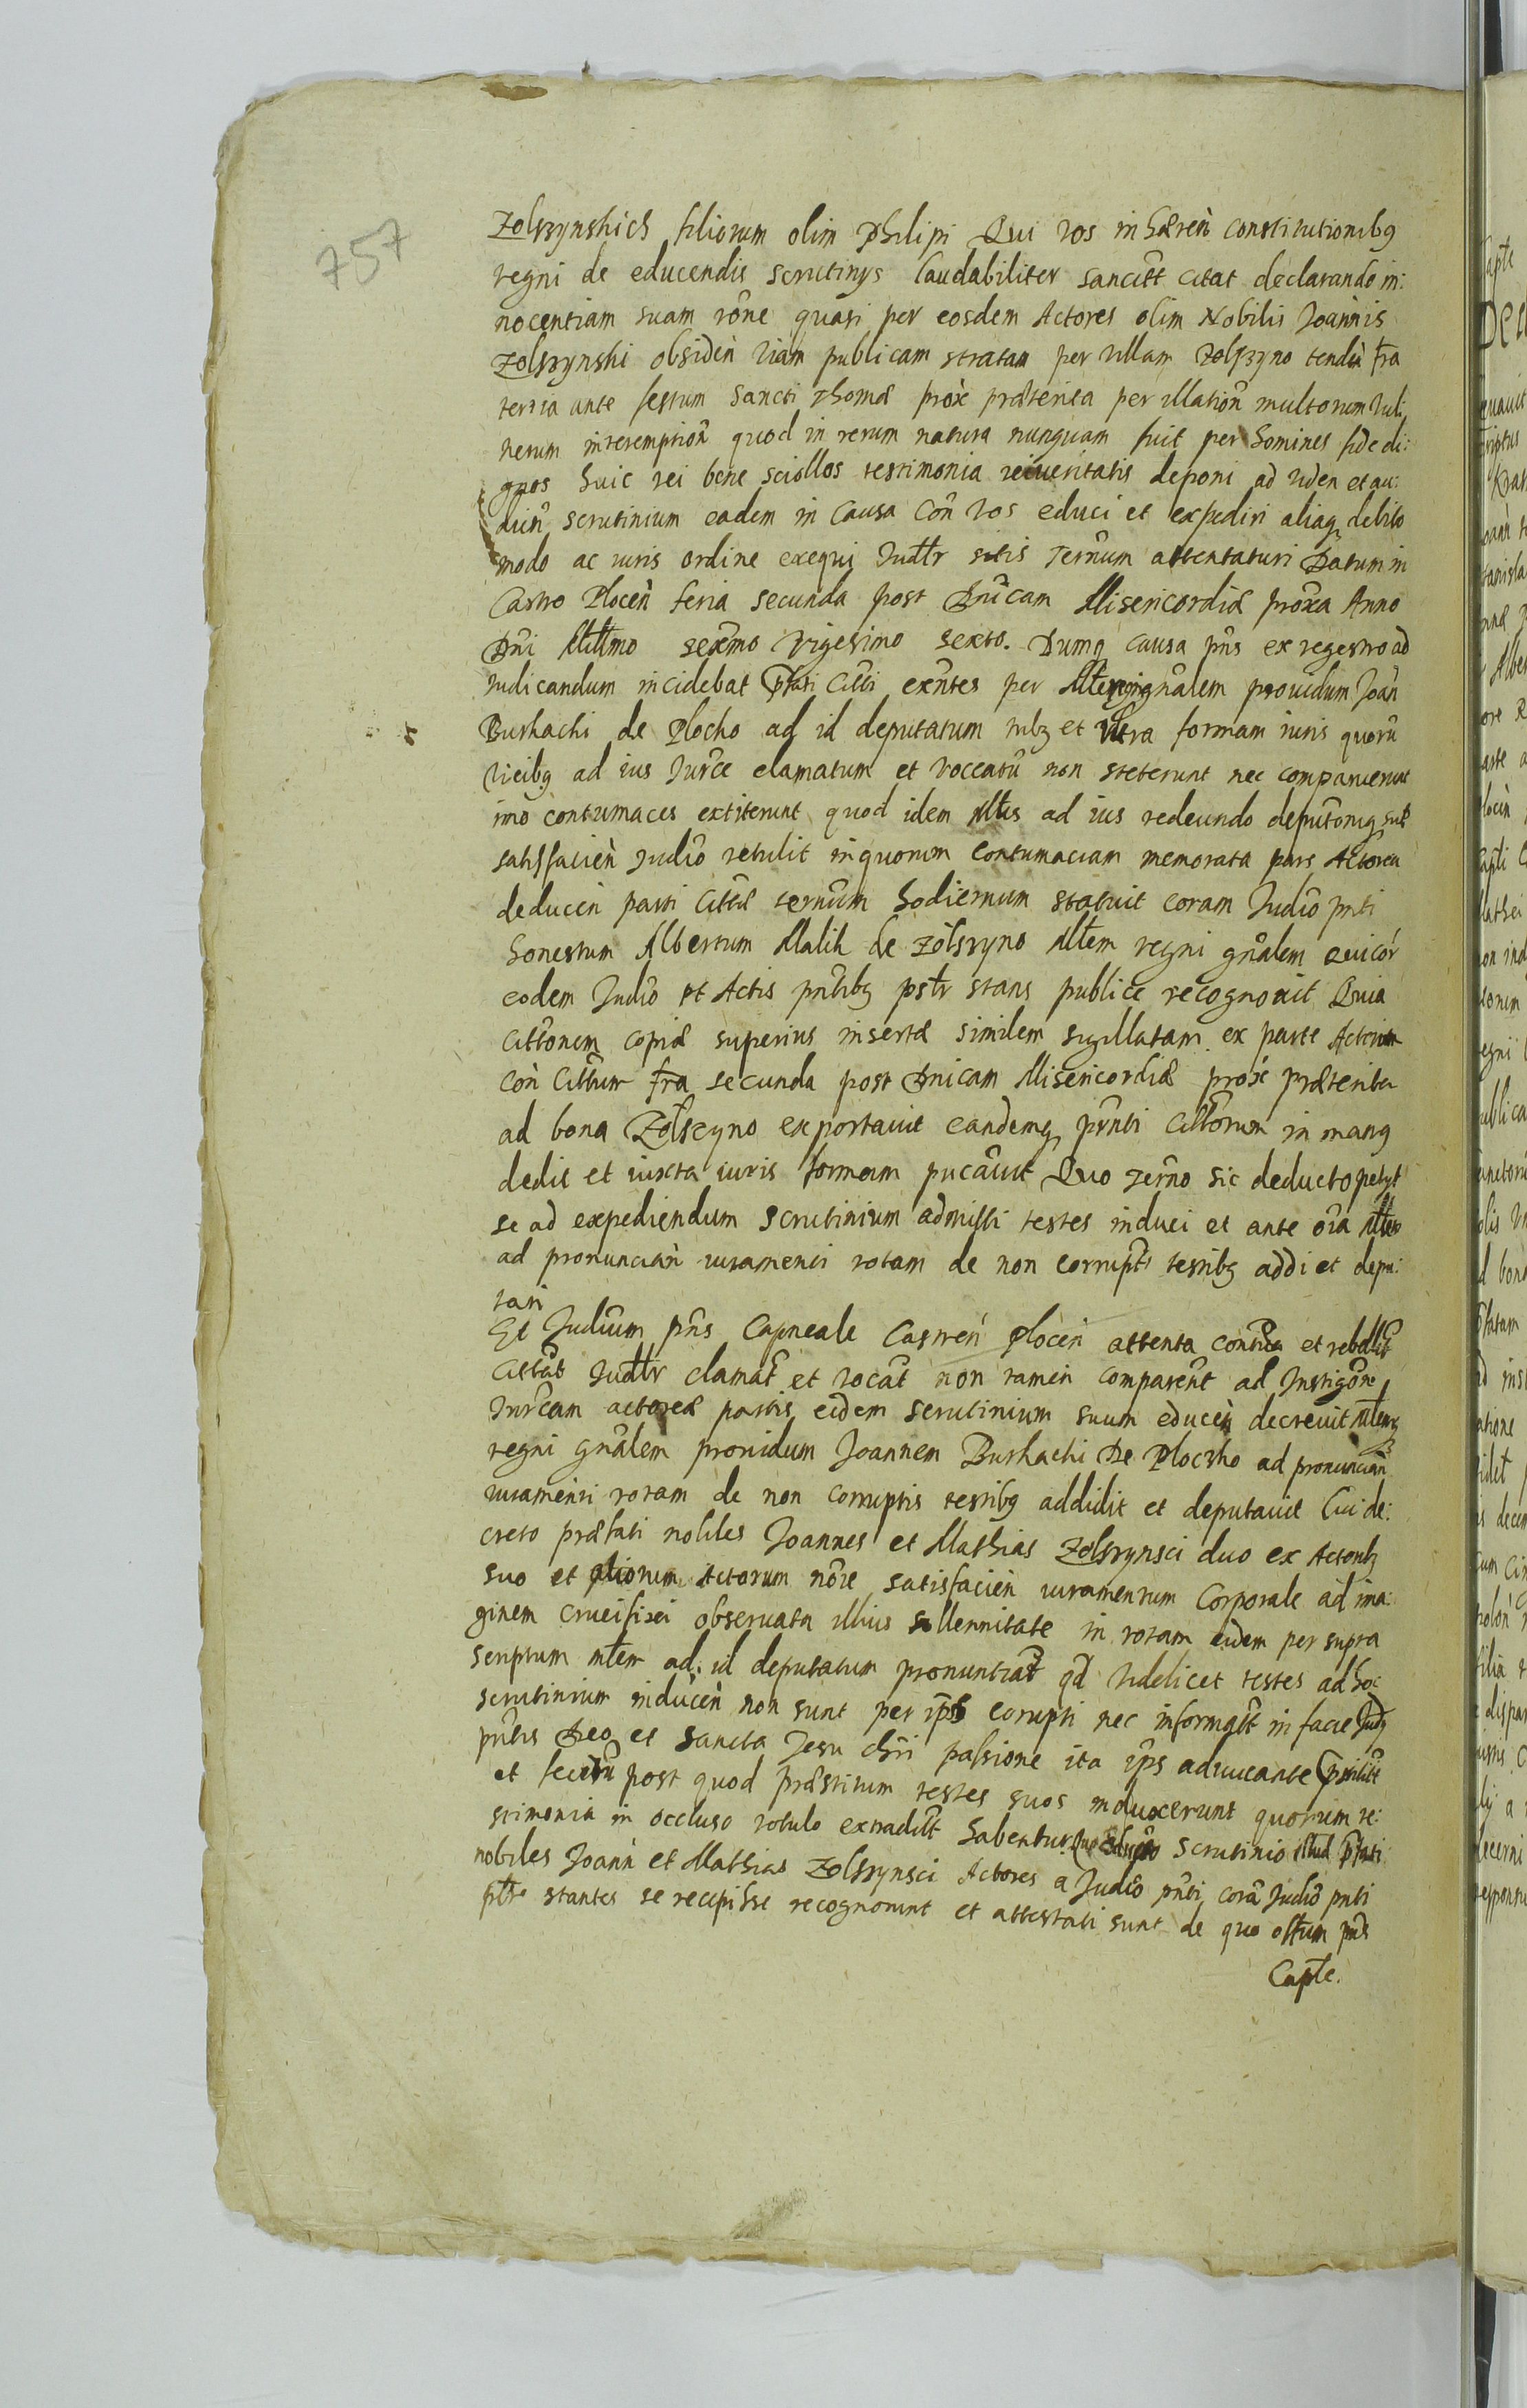 757
Zolszynskich filiorum olim Philipi Qui vos inhæren̄ constitutionibq
regni de educendis scrutinys laudabiliter sancitt̃ citat declarando in:
nocentiam suam rõne quasi per eosdem Actores olim Nobilis Joannis
Zolszynski obsiden̄ viam publicam stratam per villam Zolszyno tendeñ fra
tertia ante festum Sancti Thomæ prox præterita per illationẽ multorum vul:
nerum interemptionẽ quod in rerum natura nunquam fuit per homines fide di:
gnos huic rei bene sciollos testimonia rei veritatis deponi ad viden et au:
dien scrutinium eadem in causa Con vos educi et expediri aliaq debito
modo ac iuris ordine exequi Judtr sitis Termum attentaturi Datum in
Castro Plocen̄ feria secunda post Dnicam Misericordiæ proxa Anno
Dni Millmo sexmo vigesimo sexto. Dumq causa pns ex regestro ad
iudicandum incidebat pfati Citti exntes per Mltem gnalem prouidum Joan̄
Burkachi de Plocko ad id deputatum tribq et vltra formam iuris quorũ
vicibq ad ius Jurce clamatum et voccatũ non steterunt nec comparuerunt
imo contumaces extiterunt quod idem Mltis ad ius redeundo deputõniq suæ
satisfacien̄ Judio retulit in quorum contumaciam memorata pars Actorea
deducen̄ parti Cittæ termum hodiernum statuit coram Judio pnti
honestum Albertum Malik de Zolszyno Mltem regni gnalem qui cor
eodem Judio et Actis pntibq psltr stans publice recognouit Quia
Citõnem copiæ superius insertæ similem sigillatam ex parte Actorum
Con Cittum fra secunda post Dnicam Misericordiæ prox præterita
ad bona Zolszyno exportauit eandemq pvnti Cittorum in manq
dedit et iuxta iuris formam pucauit Quo Termo sic deducto petyt
se ad expediendum scrutinium admitti testes induci et ante oia Mltem
ad pronuncian̄ iuramenti rotam de non corruptis testibq addi et depu:
tari
Et Judium pns Capneale Castren̄ Plocen̄ attenta contia et rebellie
Cittat Judtr clamat et vocat non tamen comparent ad Instigõne
Jurceam actoreæ partis eidem scrutinium suum educen̄ decreuit Mltemq
regni gnalem prouidum Joannem Burkachi De Plocsko ad pronuncian̄
iuramenti rotam de non corruptis testibq addidit et deputauit Cui de:
creto præfati nobiles Joannes et Mathias Zolszynsci duo ex Actoribq
suo et aliorum Actorum nõie satisfacien̄ iuramentum Corporale ad ima:
ginem crucifixi obseruata illius sollennitate in rotam eidem per supra
scriptum mltem ad id deputatum pronuntiat̃ qd videlicet testes ad hoc
scrutinium inducen̄ non sunt per ipsos corrupti nec informatt̃ in facie Judy
pntis Deo et sancta Jesu chri passione ita ips adiuuante pstitit
et fecerũ post quod præstitum testes suos induxerunt quorum te:
stimonia in occluso rotulo extradit̃ habentur. Quo educto Scrutinio illud pfati
nobiles Joan̄ et Mathias Zolszynsci Actores a Judio pnti corã Judio pnti
pltr stantes se recepisse recognorunt et attestati sunt de quo ofum pns
Capte.